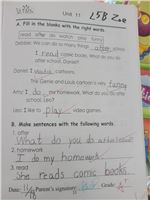 Unit 11
LSB Zoe
A. Fill in the blanks with the right words.
read after do watch play funny
Debbie: We can do so many things after school.
I read comic books. What do you do
after school, Daniel?
Daniel: I watch cartoons.
The Genie and Louis cartoon is very funny.
Amy: I do my homework. What do you do after
school, Leo?
Leo: I like to play video games.
B. Make sentences with the following words.
1. after
What do you do after school?
2. homework
I do my homework.
3. read
She reads comic books.
Date: 11/18 Parent's signature: Grade: A+